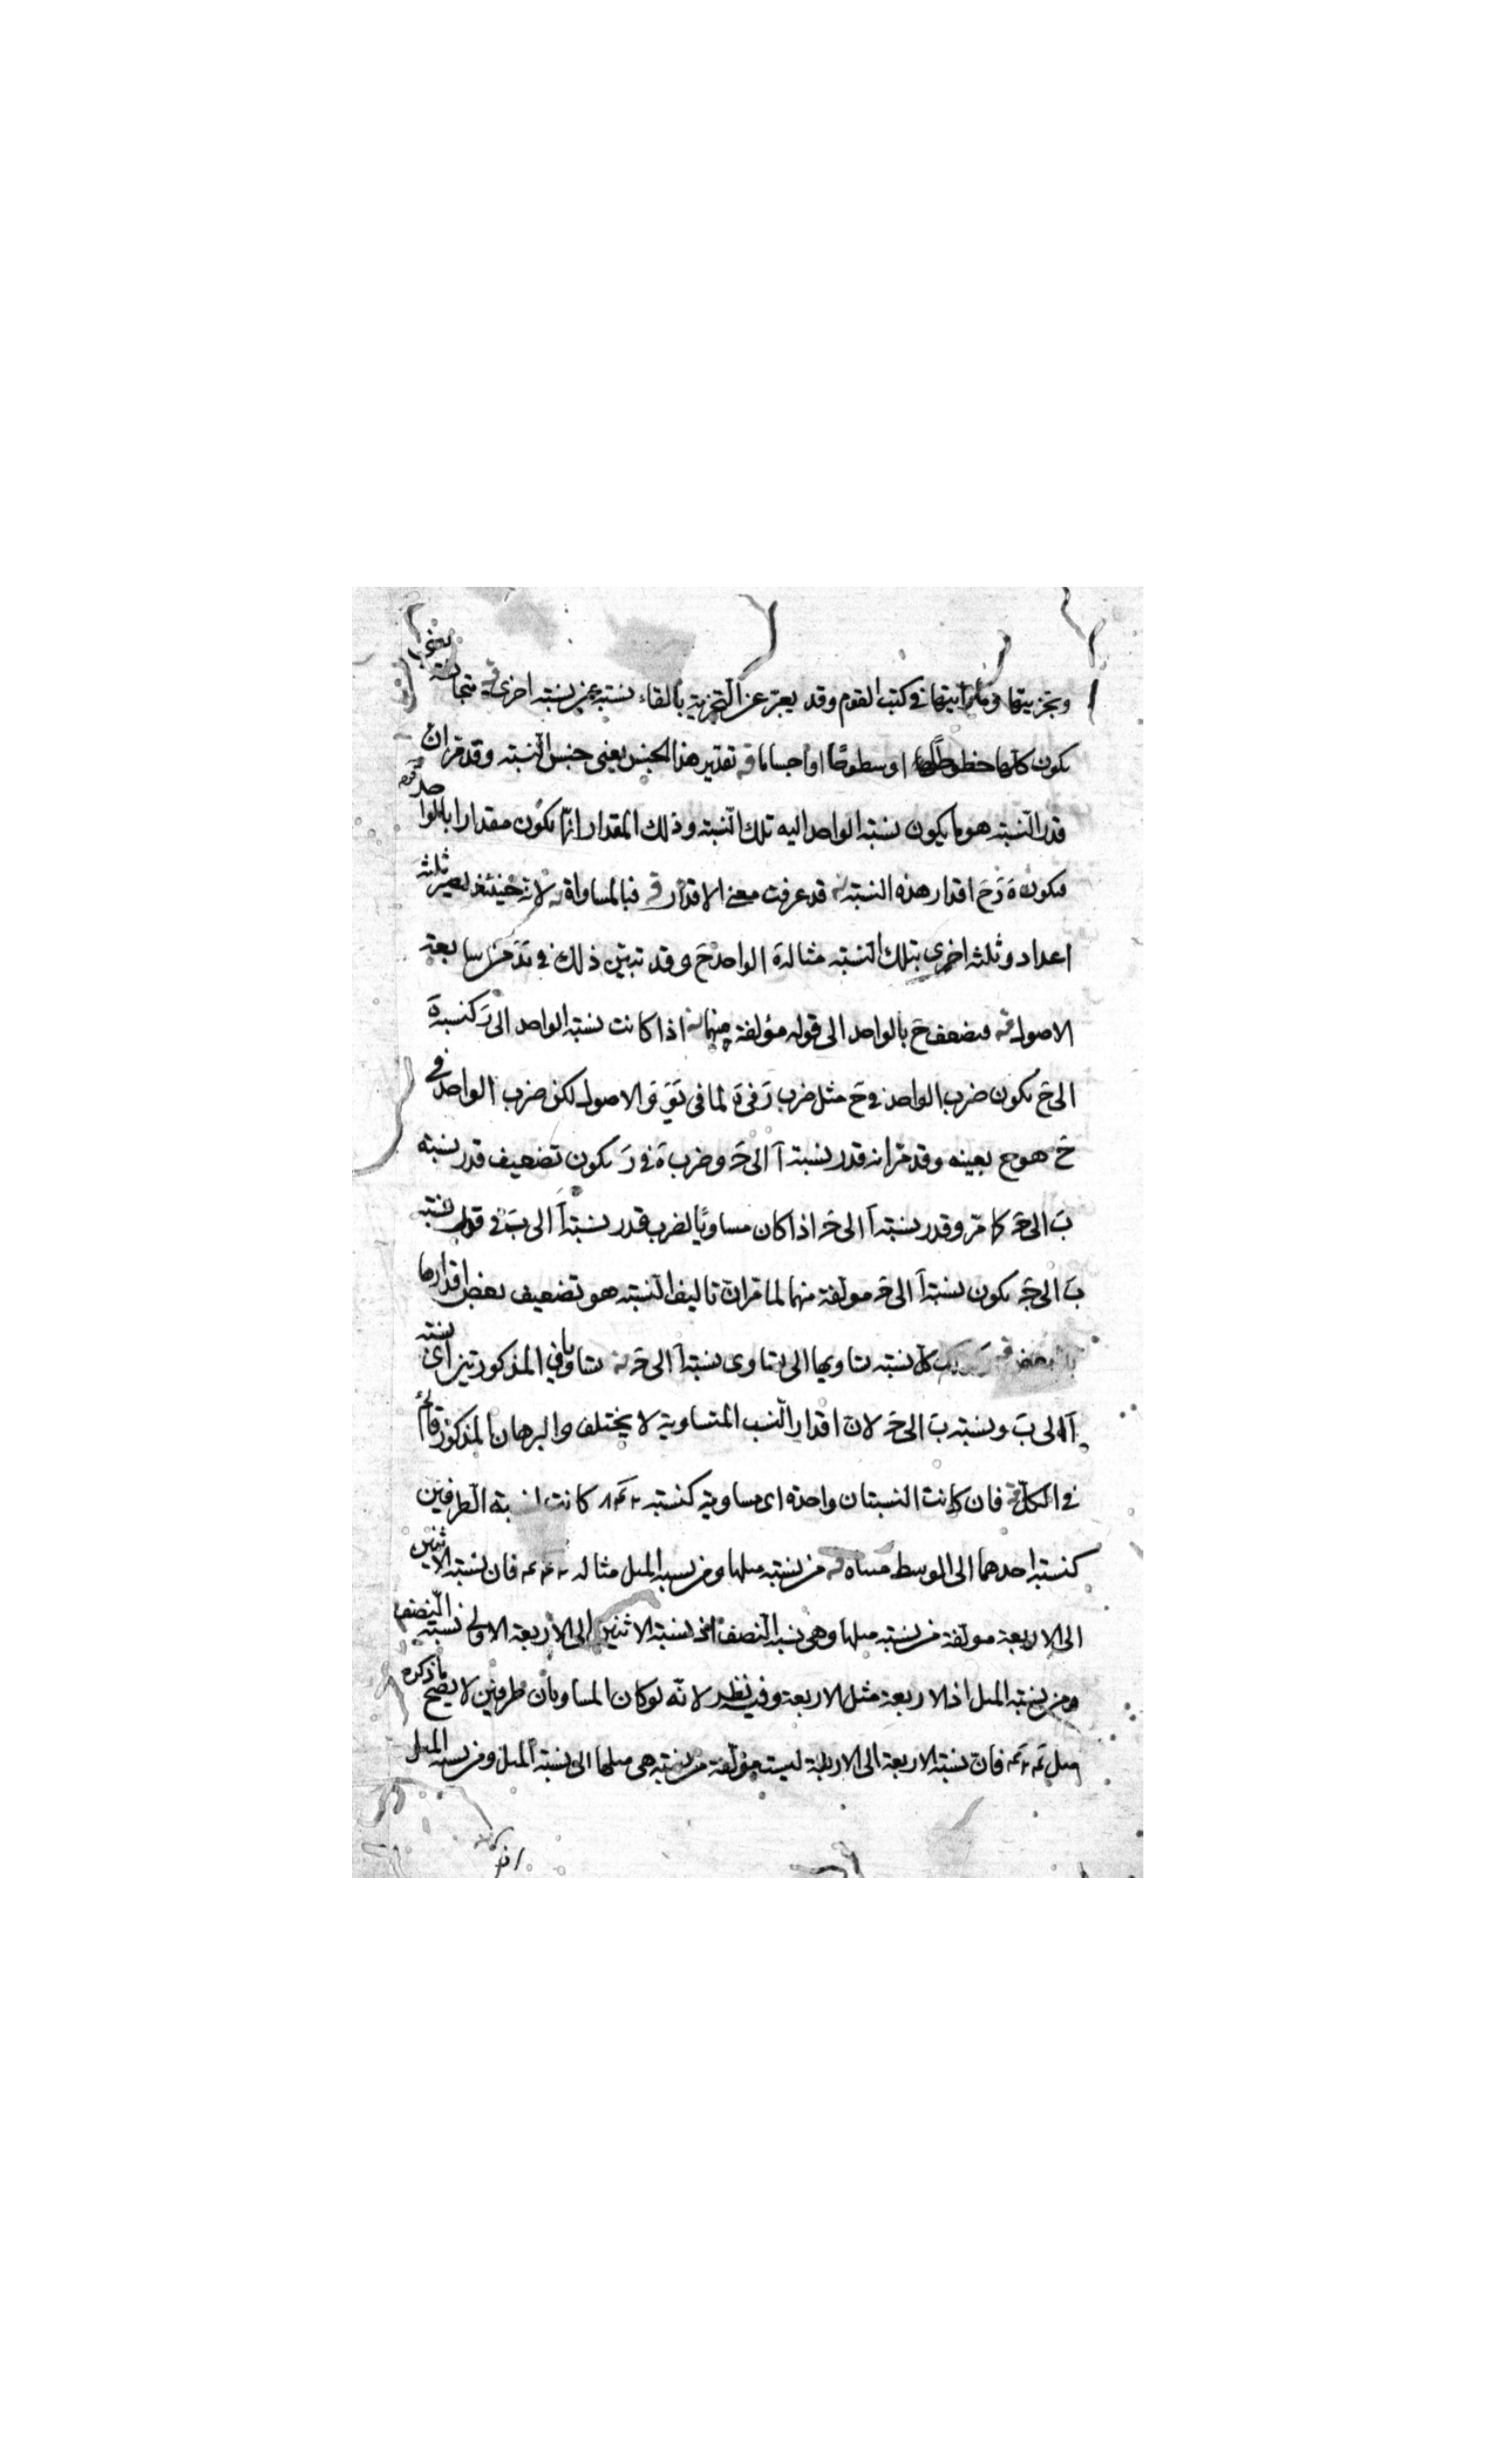 وتجزيتها وما رأيتها في كتب القوم وقد يعبر عن التجزية بالقاء نسبة من نسبة اخرى قه متجانسة يعنى
يكون كلها خطوطا او سطوحا او اجساما قه تقدير هذا الجنس يعنى جنس النسبة وقد مر ان
قدر النسبة هو ما يكون نسبة الواحد اليه تلك النسبة وذلك المقدار انما يكون مقدارا بالواحد قه
فيكون ه ز ح اقدار هذه النسبة قد عرفت معنى الاقدار قه فبالمساواة لانه حينئذ يصير ثلثة
اعداد وثلثة اخرى بتلك النسبة مثاله الواحد ح وقد تبين ذلك في من سابعة
الاصول قه فضعف ح بالواحد الى قوله مؤلفة منهما اذا كانت نسبة الواحد الى ز كنسبة ه
الى ح يكون ضرب الواحد في ح مثل ضرب ز في ه لما في الاصول لكن ضرب الواحد في
ح هو ح بعينه وقد مر انه قدر نسبة ا الى ج وضرب ه في ز يكون تضعيف قدر نسبة
ب الى ج كما مر وقدر نسبة ا الى ج اذا كان مساويا لضرب قدر نسبة ا الى ب في قدر نسبة
ب الى ج يكون نسبة ا الى ج مولفة منهما لما مر ان تاليف النسبة هو تضعيف بعض اقدارها
ببعض كل نسبة تساويها اى تساوى نسبة ا الى ج تساويا في المذكورتين اى نسبة
ا الى ب ونسبة ب الى ج لان اقدار النسب المتساوية لا يختلف والبرهان المذكور قائم
في الكل قه فان كانت النسبتان واحدة اى مساوية كنسبة ٢ ٤ ٨ كانت نسبة الطرفين
كنسبة احدهما الى الوسط مثناة من نسبة مثلها ومن نسبة المثل مثاله ٢ ٤ ٤ فان نسبة الاثنين
الى الاربعة مولفة من نسبة مثلها وهى نسبة النصف نسبة الاثنين الى الاربعة الاولى نسبة النصف
ومن نسبة المثل اذ الاربعة مثل الاربعة وفيه نظر لانه لو كان المساويان طرفين لا يصح ما ذكره
مثل ٤ ٢ ٤ فان نسبة الاربعة الى الاربعة ليست مؤلفة من نسبة هى مثلها اى نسبة المثل ومن نسبة المثل